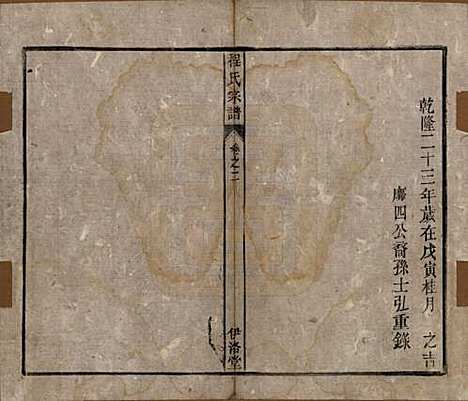 乾隆二十三年歲在戊寅桂月之吉
廖四公裔孫士弘重錄
程氏宗譜
卷之二
伊洛堂